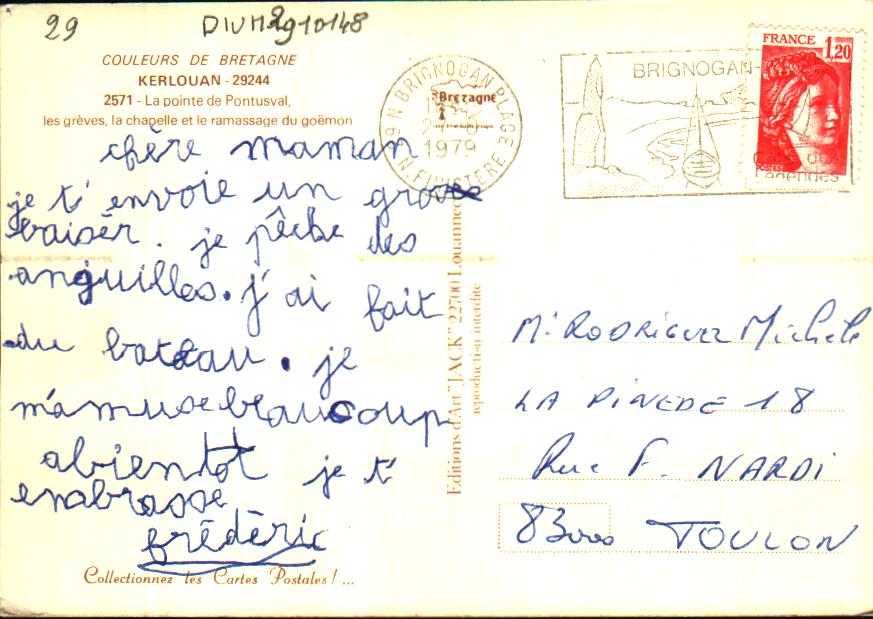 29
DIVH2910148
COULEURS DE BRETAGNE
KERLOUAN - 29244
2571 - La pointe de Pontusval,
les grèves, la chapelle et le ramassage du goëmon
29 N BRIGNOGAN PLAGE
Bretagne
1979
N. FINISTERE
BRIGNOGAN-
Légendes
FRANCE 1,20
POSTES
chère maman
je t'envoie un gros
baiser. je pêche des
anguilles. j'ai fait
du bateau. je
m'amuse beaucoup
abientot je t'
embrasse
frédéric
Collectionnez les Cartes Postales ! ...
Editions d'Art "JACK" 22700 Louannec
reproduction interdite
Mr RODRIGUEZ Michele
LA PINEDE 18
Rue F. NARDI
83000 TOULON